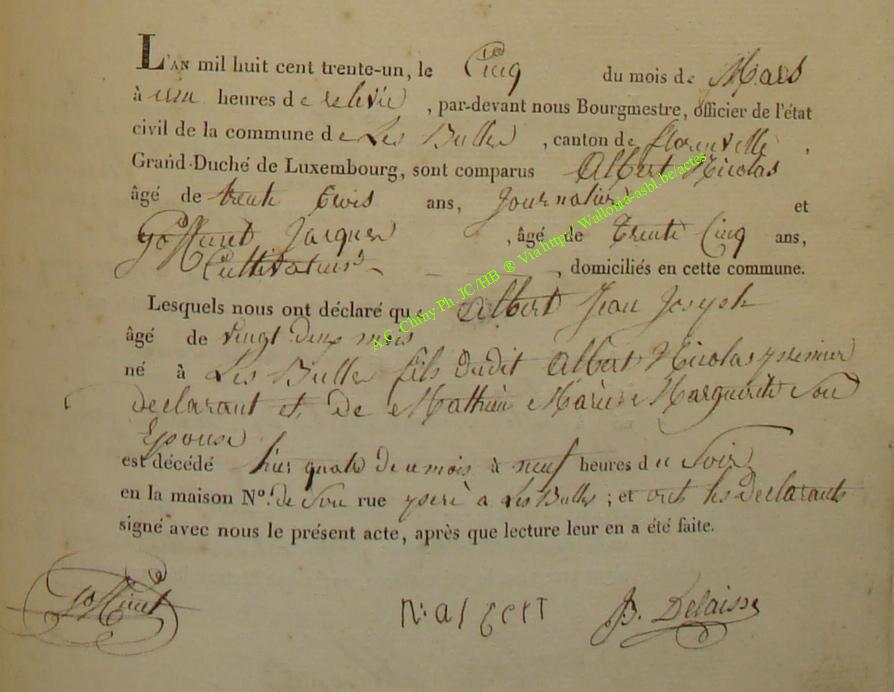 L'AN mil huit cent trente-un, le Cinq du mois de Mars
à une heures de relevée, par-devant nous Bourgmestre, officier de l'état
civil de la commune de Les Bulles, canton de florenville,
Grand-Duché de Luxembourg, sont comparus Albert Nicolas
âgé de trente trois ans, Journalier et
Jacques, âgé de Trente Cinq ans,
Cultivateurs, domiciliés en cette commune.
Lesquels nous ont déclaré que Albert Jean Joseph
âgé de vingt deux mois
né à Les Bulles fils dudit Albert Nicolas premier
declarant et de Mathieu Marie Marguerite Son
Epouse
est décédé hier quatre de ce mois à neuf heures du Soir
en la maison N.º de Son rue à Les Bulles ; et ont les Declarants
signé avec nous le présent acte, après que lecture leur en a été faite.
B. Delaisse
A.G. Chiny Ph. JC/HB ® Via http:// Wallonia-asbl.be/actes